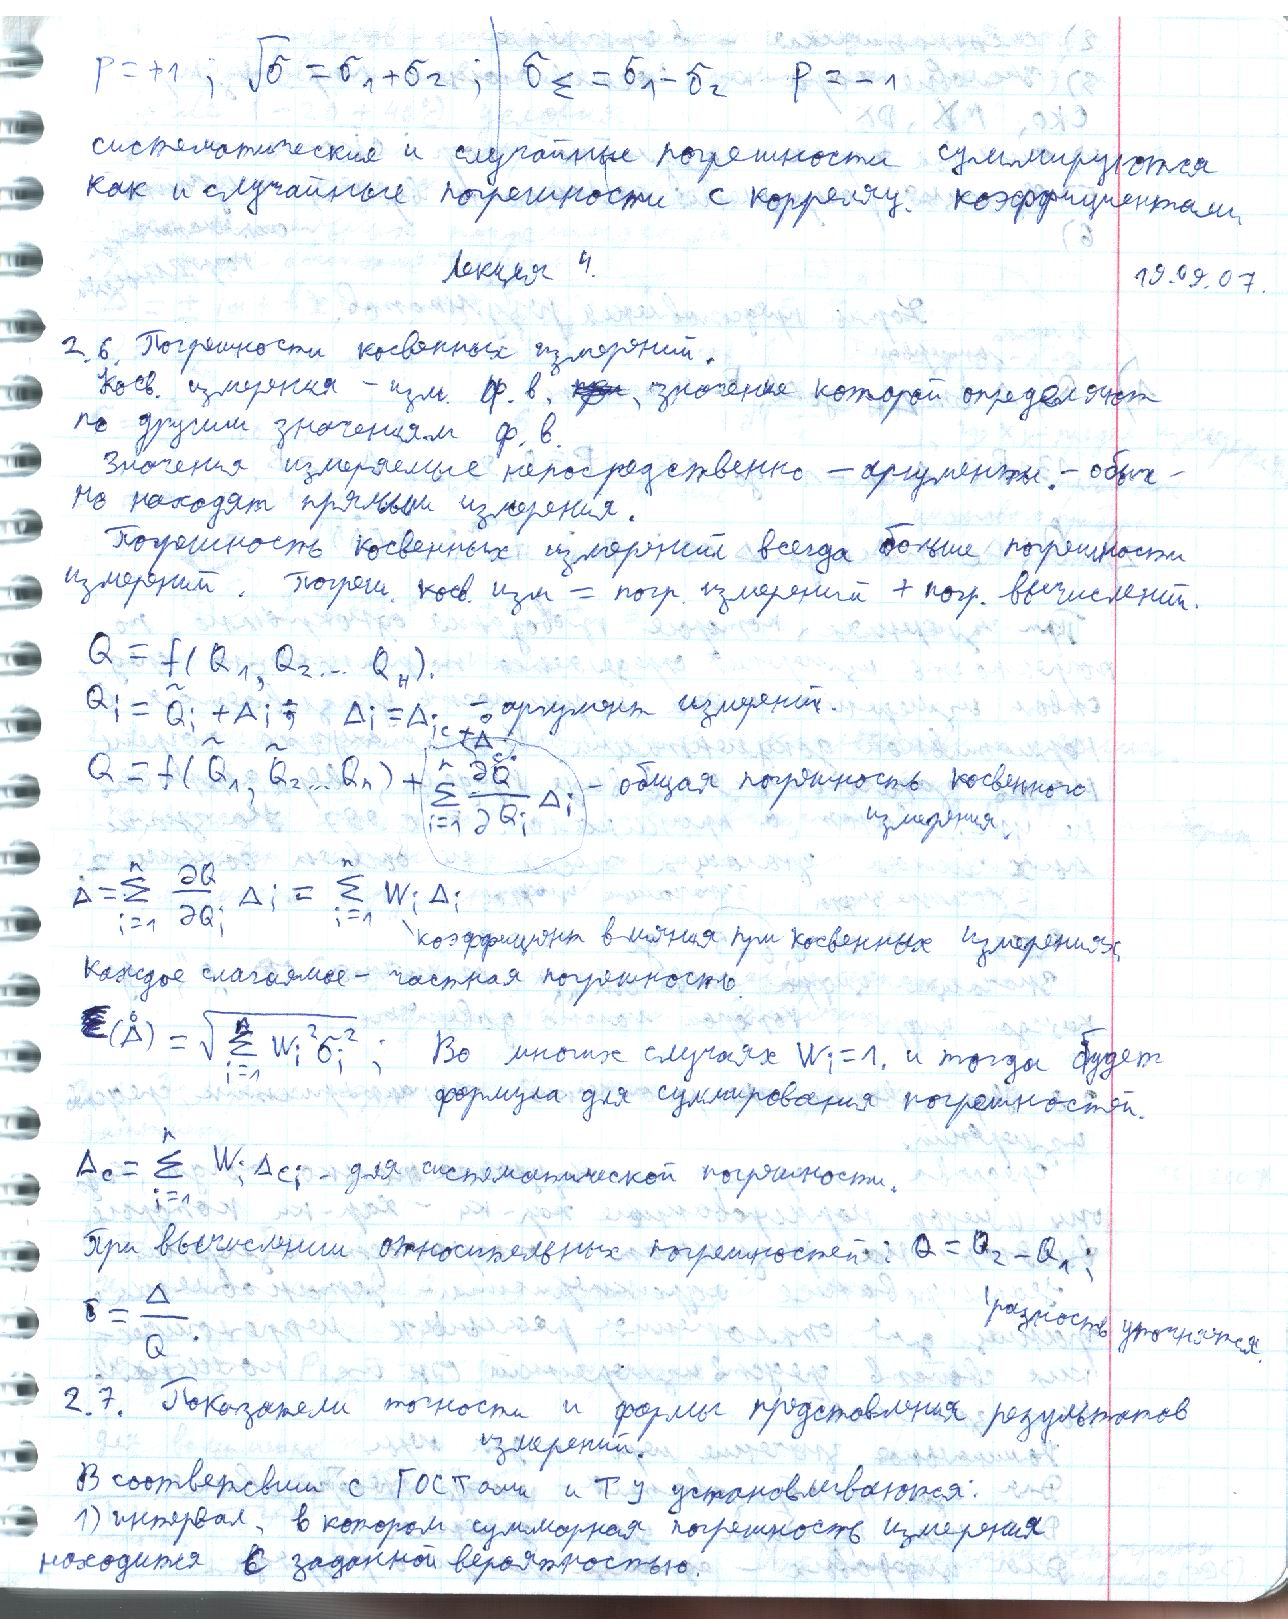 p = +1 ; √σ = σ₁ + σ₂ ; σ_Σ = σ₁ − σ₂ p = −1
систематические и случайные погрешности суммируются
как и случайные погрешности с корреляц. коэффициентами
Лекция 4. 19.09.07.
2.6. Погрешности косвенных измерений.
Косв. измерения – изм. ф. в., значение которой определяют
по другим значениям ф. в.
Значения измеряемые непосредственно – аргументы. – обыч-
но находят прямыми измерения.
Погрешность косвенных измерений всегда больше погрешности
измерений. Погреш. косв. изм = погр. измерений + погр. вычислений.
Q = f(Q₁, Q₂... Qн).
Qᵢ = Q̃ᵢ + Δᵢ ; Δᵢ = Δᵢc + Δ̊ᵢ – аргумент измерений.
Q = f(Q̃₁, Q̃₂... Qn) + Σ_{i=1}^{n} ∂Q/∂Qᵢ Δᵢ – общая погрешность косвенного
измерения
Δ = Σ_{i=1}^{n} ∂Q/∂Qᵢ Δᵢ = Σ_{i=1}^{n} Wᵢ Δᵢ
коэффициент влияния при косвенных измерениях
каждое слагаемое – частная погрешность
(Δ̊) = √(Σ_{i=1}^{n} Wᵢ² σᵢ²) ; Во многих случаях Wᵢ = 1. и тогда будет
формула для суммирования погрешностей.
Δc = Σ_{i=1}^{n} Wᵢ Δcᵢ – для систематической погрешности.
При вычислении относительных погрешностей: Q = Q₂ − Q₁ ;
δ = Δ/Q . разность
2.7. Показатели точности и формы представления результатов
измерений.
В соответсвии с ГОСТами и ТУ установливаются:
1) интервал, в котором суммарная погрешность измерения
находится с заданной вероятностью.